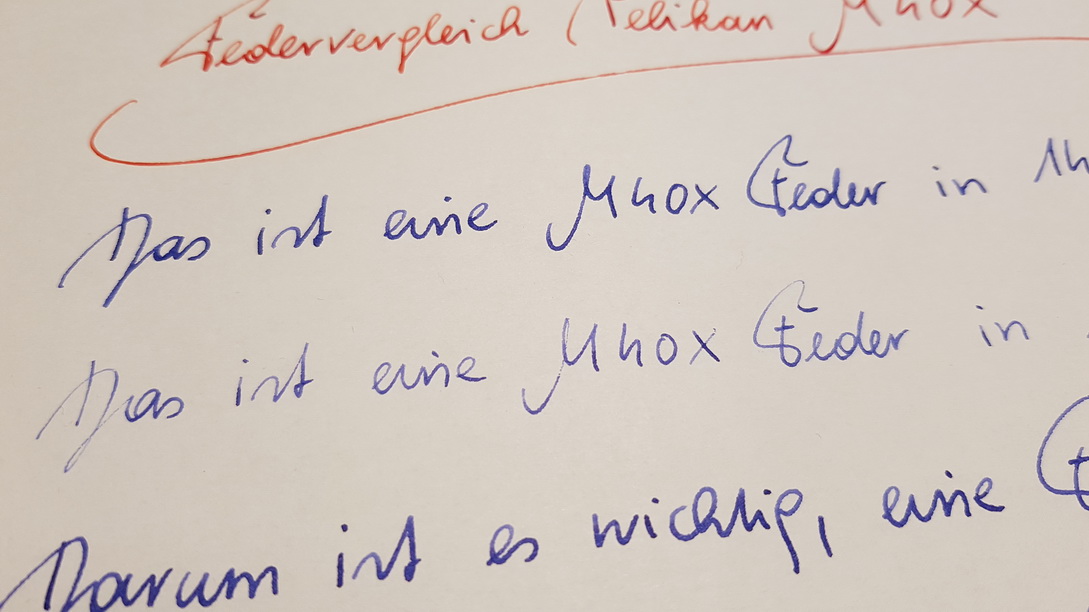 Federvergleich (Pelikan M40x
Das ist eine M40x Feder in 14
Das ist eine M40x Feder in
Darum ist es wichtig, eine